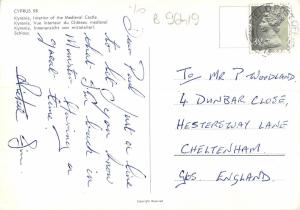 CYPRUS 98
Kyrenia, Interior of the Medieval Castle
Kyrenia, Vue interieur du Château, medieval
Kyrenia, Innenansicht von mittelalterl.
Schloss
B 9649
Dear Paul just a line
to let you know
that I'm back in
Munster. Having a
great time.
TO MR P WOODLAND
4 DUNBAR CLOSE,
HESTERSWAY LANE
CHELTENHAM.
GLOS. ENGLAND.
Copyright Reserved